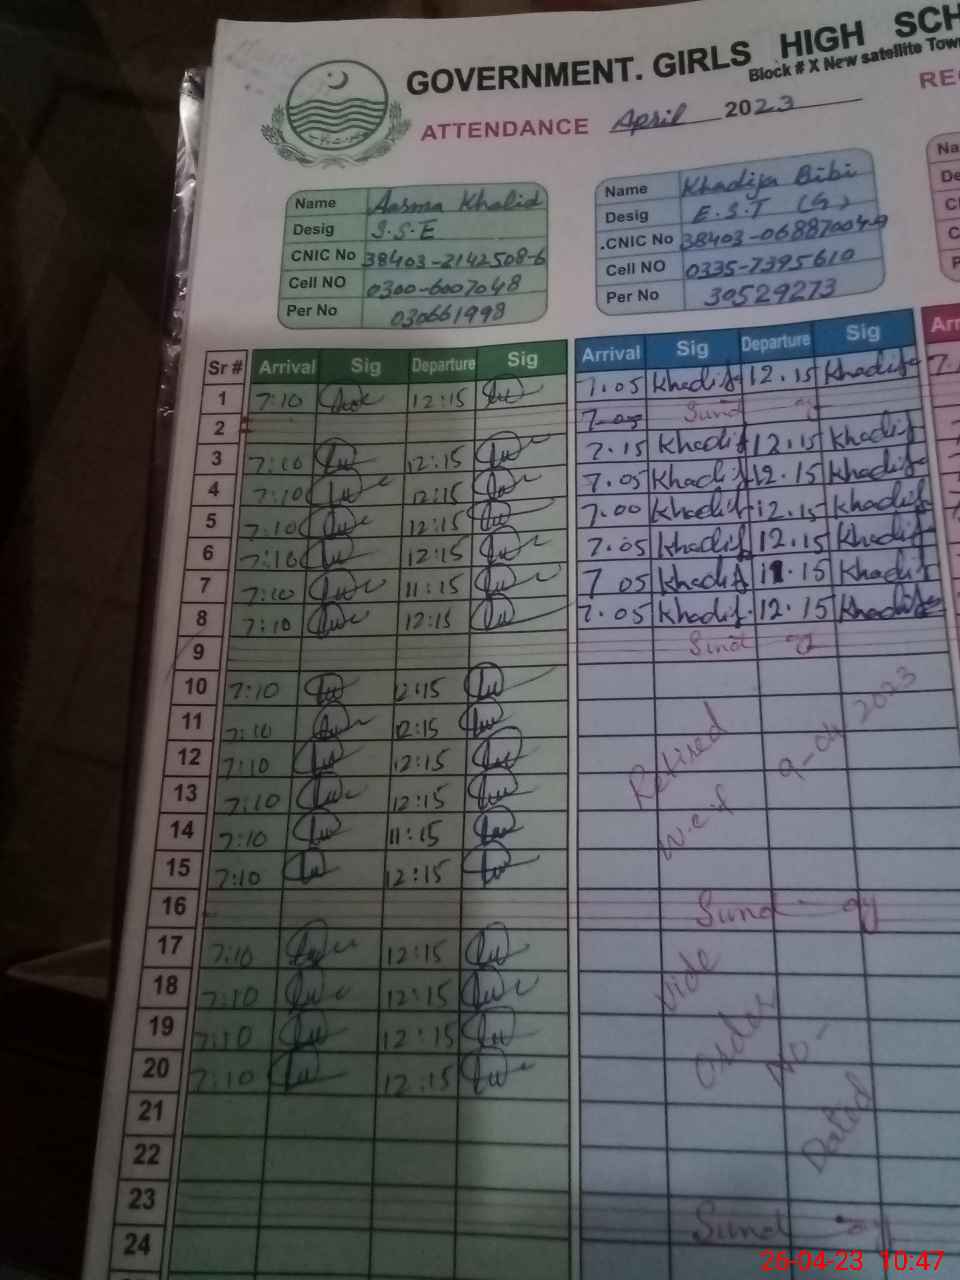 GOVERNMENT. GIRLS HIGH SCH
Block # X New satellite Tow
ATTENDANCE April 2023
RE
Name Aasma Khalid
Desig S.S.E
CNIC No 38403-2142508-6
Cell NO 0300-6007048
Per No 030661998
Name Khadija Bibi
Desig E.S.T (G)
.CNIC No 38403-06887004-9
Cell NO 0335-7395610
Per No 30529273
Na
De
C
C
P
Sr # Arrival Sig Departure Sig Arrival Sig Departure Sig Arr
1 7:10 12:15 7.05 Khadija 12.15 Khadija 7.
2 7-05 Sund ay
3 7:10 12:15 7.15 Khadija 12.15 Khadija
4 7:10 12:15 7.05 Khadija 12.15 Khadija
5 7:10 12:15 7.00 Khadija 12.15 Khadija
6 7:10 12:15 7.05 Khadija 12.15 Khadija
7 7:10 11:15 7 05 Khadija 11.15 Khadija
8 7:10 12:15 7.05 Khadija 12.15 Khadija
9 Sund ay
10 7:10 12:15
11 7:10 12:15
12 7:10 12:15
13 7:10 12:15
14 7:10 11:15
15 7:10 12:15
Retired
w.e.f 9-04 2023
16 Sund ay
17 7:10 12:15
18 7:10 12:15
19 7:10 12:15
20 7:10 12:15
Vide
Order
No-
Dated
21
22
23 Sund ay
24
26-04-23 10:47